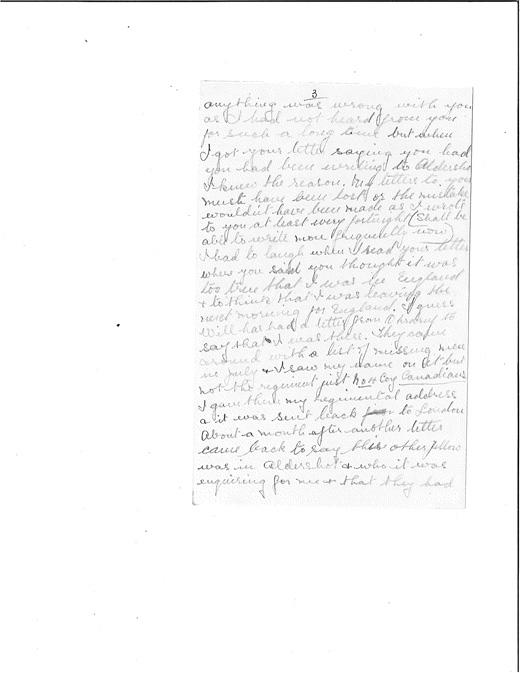 3
anything was wrong with you
as I had not heard from you
for such a long time but when
I got your letter saying you had
you had been writing to Aldershot
I knew the reason. My letters to you
must have been lost or the mistake
wouldn't have been made as I wrote
to you at least every fortnight (Shall be
able to write more frequently now)
I had to laugh when I read your letter
where you said you thought it was
too true that I was in England
& to think that I was leaving the
next morning for England. I guess
Will has had a letter from to
say that I was there. They came
around with a list of missing men
in July & I saw my name on it but
not the regiment just No Coy Canadians
I gave them my regimental address
& it was sent back to London
About a month after another letter
came back to say this other fellow
was in Aldershot & who it was
enquiring for me & that they had